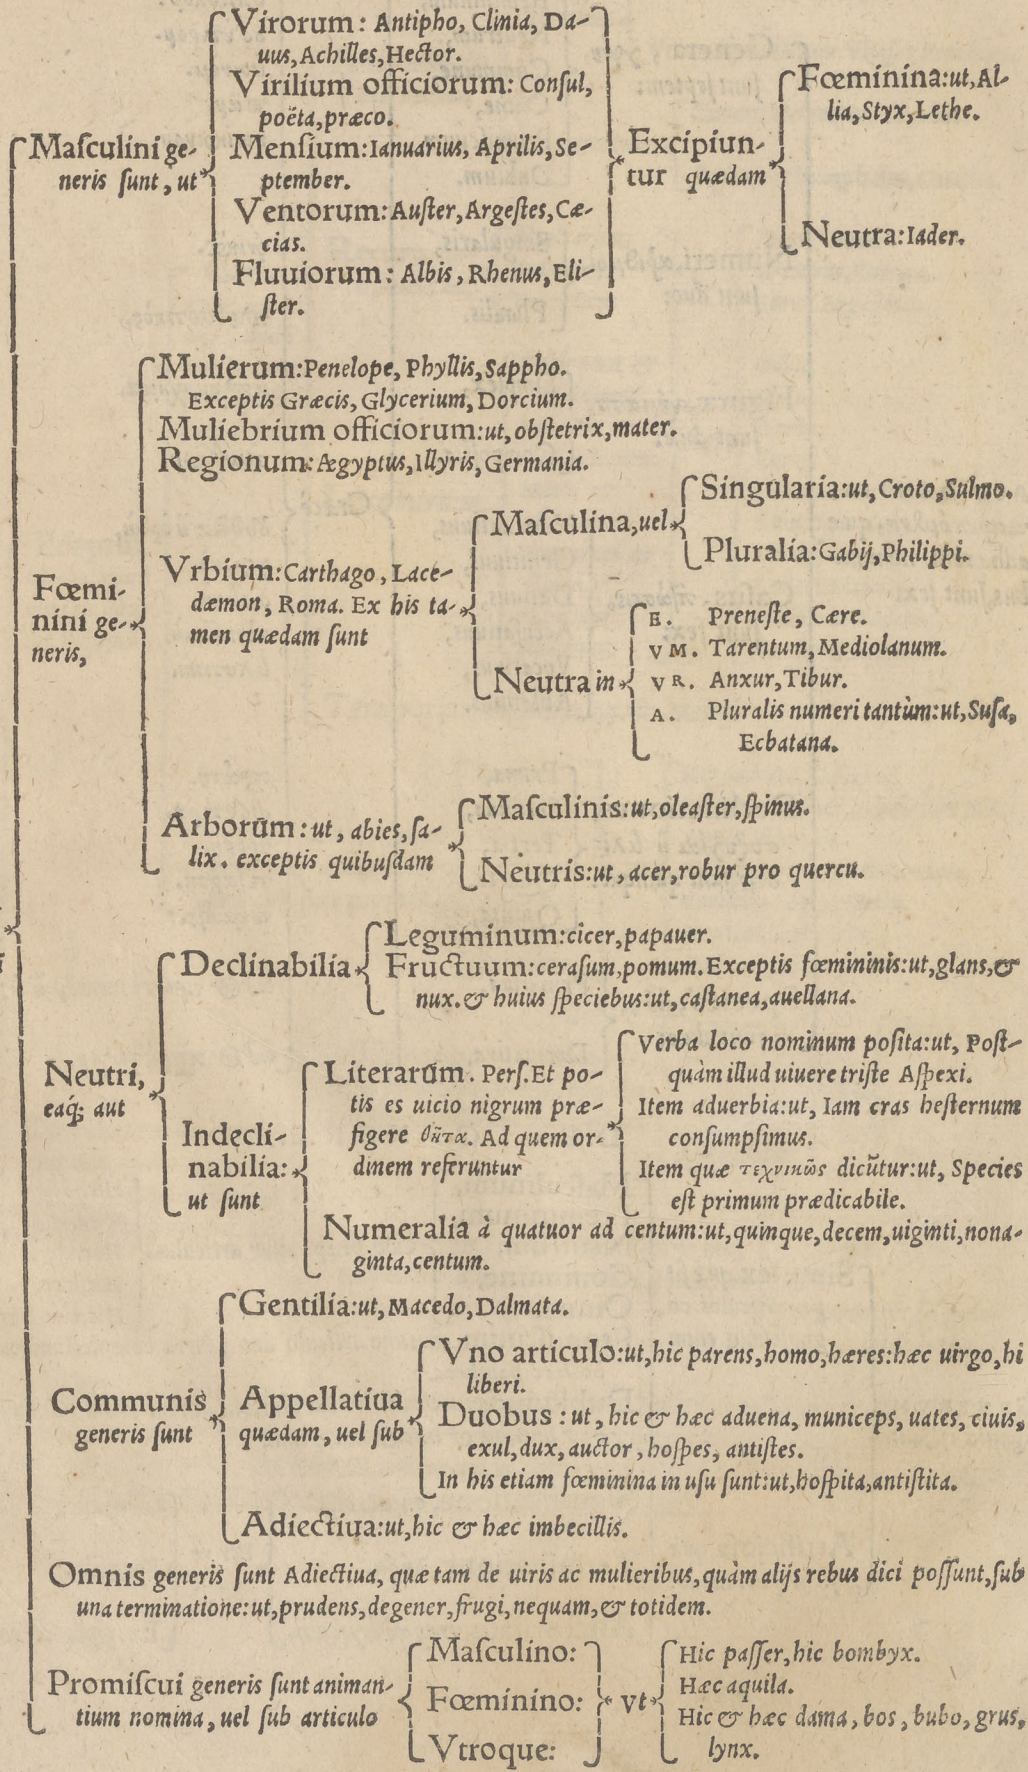 Virorum: Antipho, Clinia, Da-
uus, Achilles, Hector.
Virilium officiorum: Conſul,
poëta, præco.
Maſculini ge-
neris ſunt, ut
Menſium: Ianuarius, Aprilis, Se-
ptember.
Ventorum: Auſter, Argeſtes, Cæ-
cias.
Fluuiorum: Albis, Rhenus, Eli-
ſter.
Excipiun-
tur quædam
Fœminina: ut, Al-
lia, Styx, Lethe.
Neutra: Iader.
Fœmi-
nini ge-
neris,
Mulierum: Penelope, Phyllis, Sappho.
Exceptis Græcis, Glycerium, Dorcium.
Muliebrium officiorum: ut, obſtetrix, mater.
Regionum: Ægyptus, Illyris, Germania.
Vrbium: Carthago, Lace-
dæmon, Roma. Ex his ta-
men quædam ſunt
Maſculina, uel
Singularia: ut, Croto, Sulmo.
Pluralia: Gabij, Philippi.
Neutra in
E. Preneſte, Cære.
VM. Tarentum, Mediolanum.
VR. Anxur, Tibur.
A. Pluralis numeri tantùm: ut, Suſa,
Ecbatana.
Arborum: ut, abies, ſa-
lix. exceptis quibuſdam
Maſculinis: ut, oleaſter, ſpinus.
Neutris: ut, acer, robur pro quercu.
Neutri,
eaq́; aut
Declinabilia
Leguminum: cicer, papauer.
Fructuum: ceraſum, pomum. Exceptis fœmininis: ut, glans, &
nux. & huius ſpeciebus: ut, caſtanea, auellana.
Indecli-
nabilia:
ut ſunt
Literarūm. Perſ. Et po-
tis es uicio nigrum præ-
figere θῆτα. Ad quem or-
dinem referuntur
Verba loco nominum poſita: ut, Poſt-
quàm illud uiuere triſte Aſpexi.
Item aduerbia: ut, Iam cras heſternum
conſumpſimus.
Item quæ τεχνικῶς dicūtur: ut, Species
eſt primum prædicabile.
Numeralia à quatuor ad centum: ut, quinque, decem, uiginti, nona-
ginta, centum.
Communis
generis ſunt
Gentilia: ut, Macedo, Dalmata.
Appellatiua
quædam, uel ſub
Vno articulo: ut, hic parens, homo, hæres: hæc uirgo, hi
liberi.
Duobus: ut, hic & hæc aduena, municeps, uates, ciuis,
exul, dux, auctor, hoſpes, antiſtes.
In his etiam fœminina in uſu ſunt: ut, hoſpita, antiſtita.
Adiectiua: ut, hic & hæc imbecillis.
Omnis generis ſunt Adiectiua, quæ tam de uiris ac mulieribus, quàm alijs rebus dici poſſunt, ſub
una terminatione: ut, prudens, degener, frugi, nequam, & totidem.
Promiſcui generis ſunt animan-
tium nomina, uel ſub articulo
Maſculino:
Fœminino:
Vtroque:
vt
Hic paſſer, hic bombyx.
Hæc aquila.
Hic & hæc dama, bos, bubo, grus,
lynx.